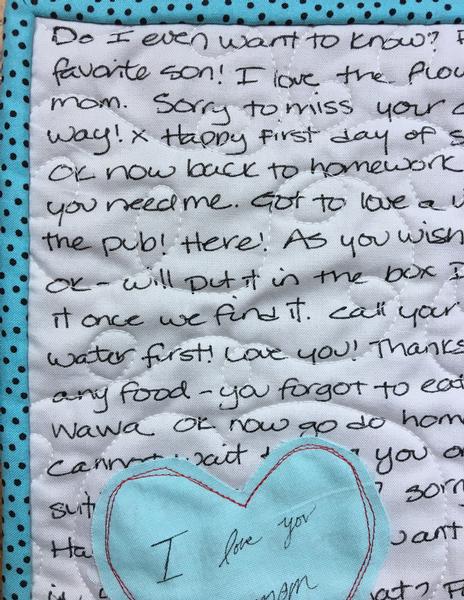 Do I even want to know?
favorite son! I love the
mom. Sorry to miss your
way! x Happy first day of
OK now back to homework
you need me. Got to love a
the pub! Here! As you wish
OK - will put it in the box
it once we find it. Call your
water first! Love you! Thanks
any food - you forgot to eat
Wawa OK now go do hom
cannot wait you
sorr
Ha want
I love you
mom
at?